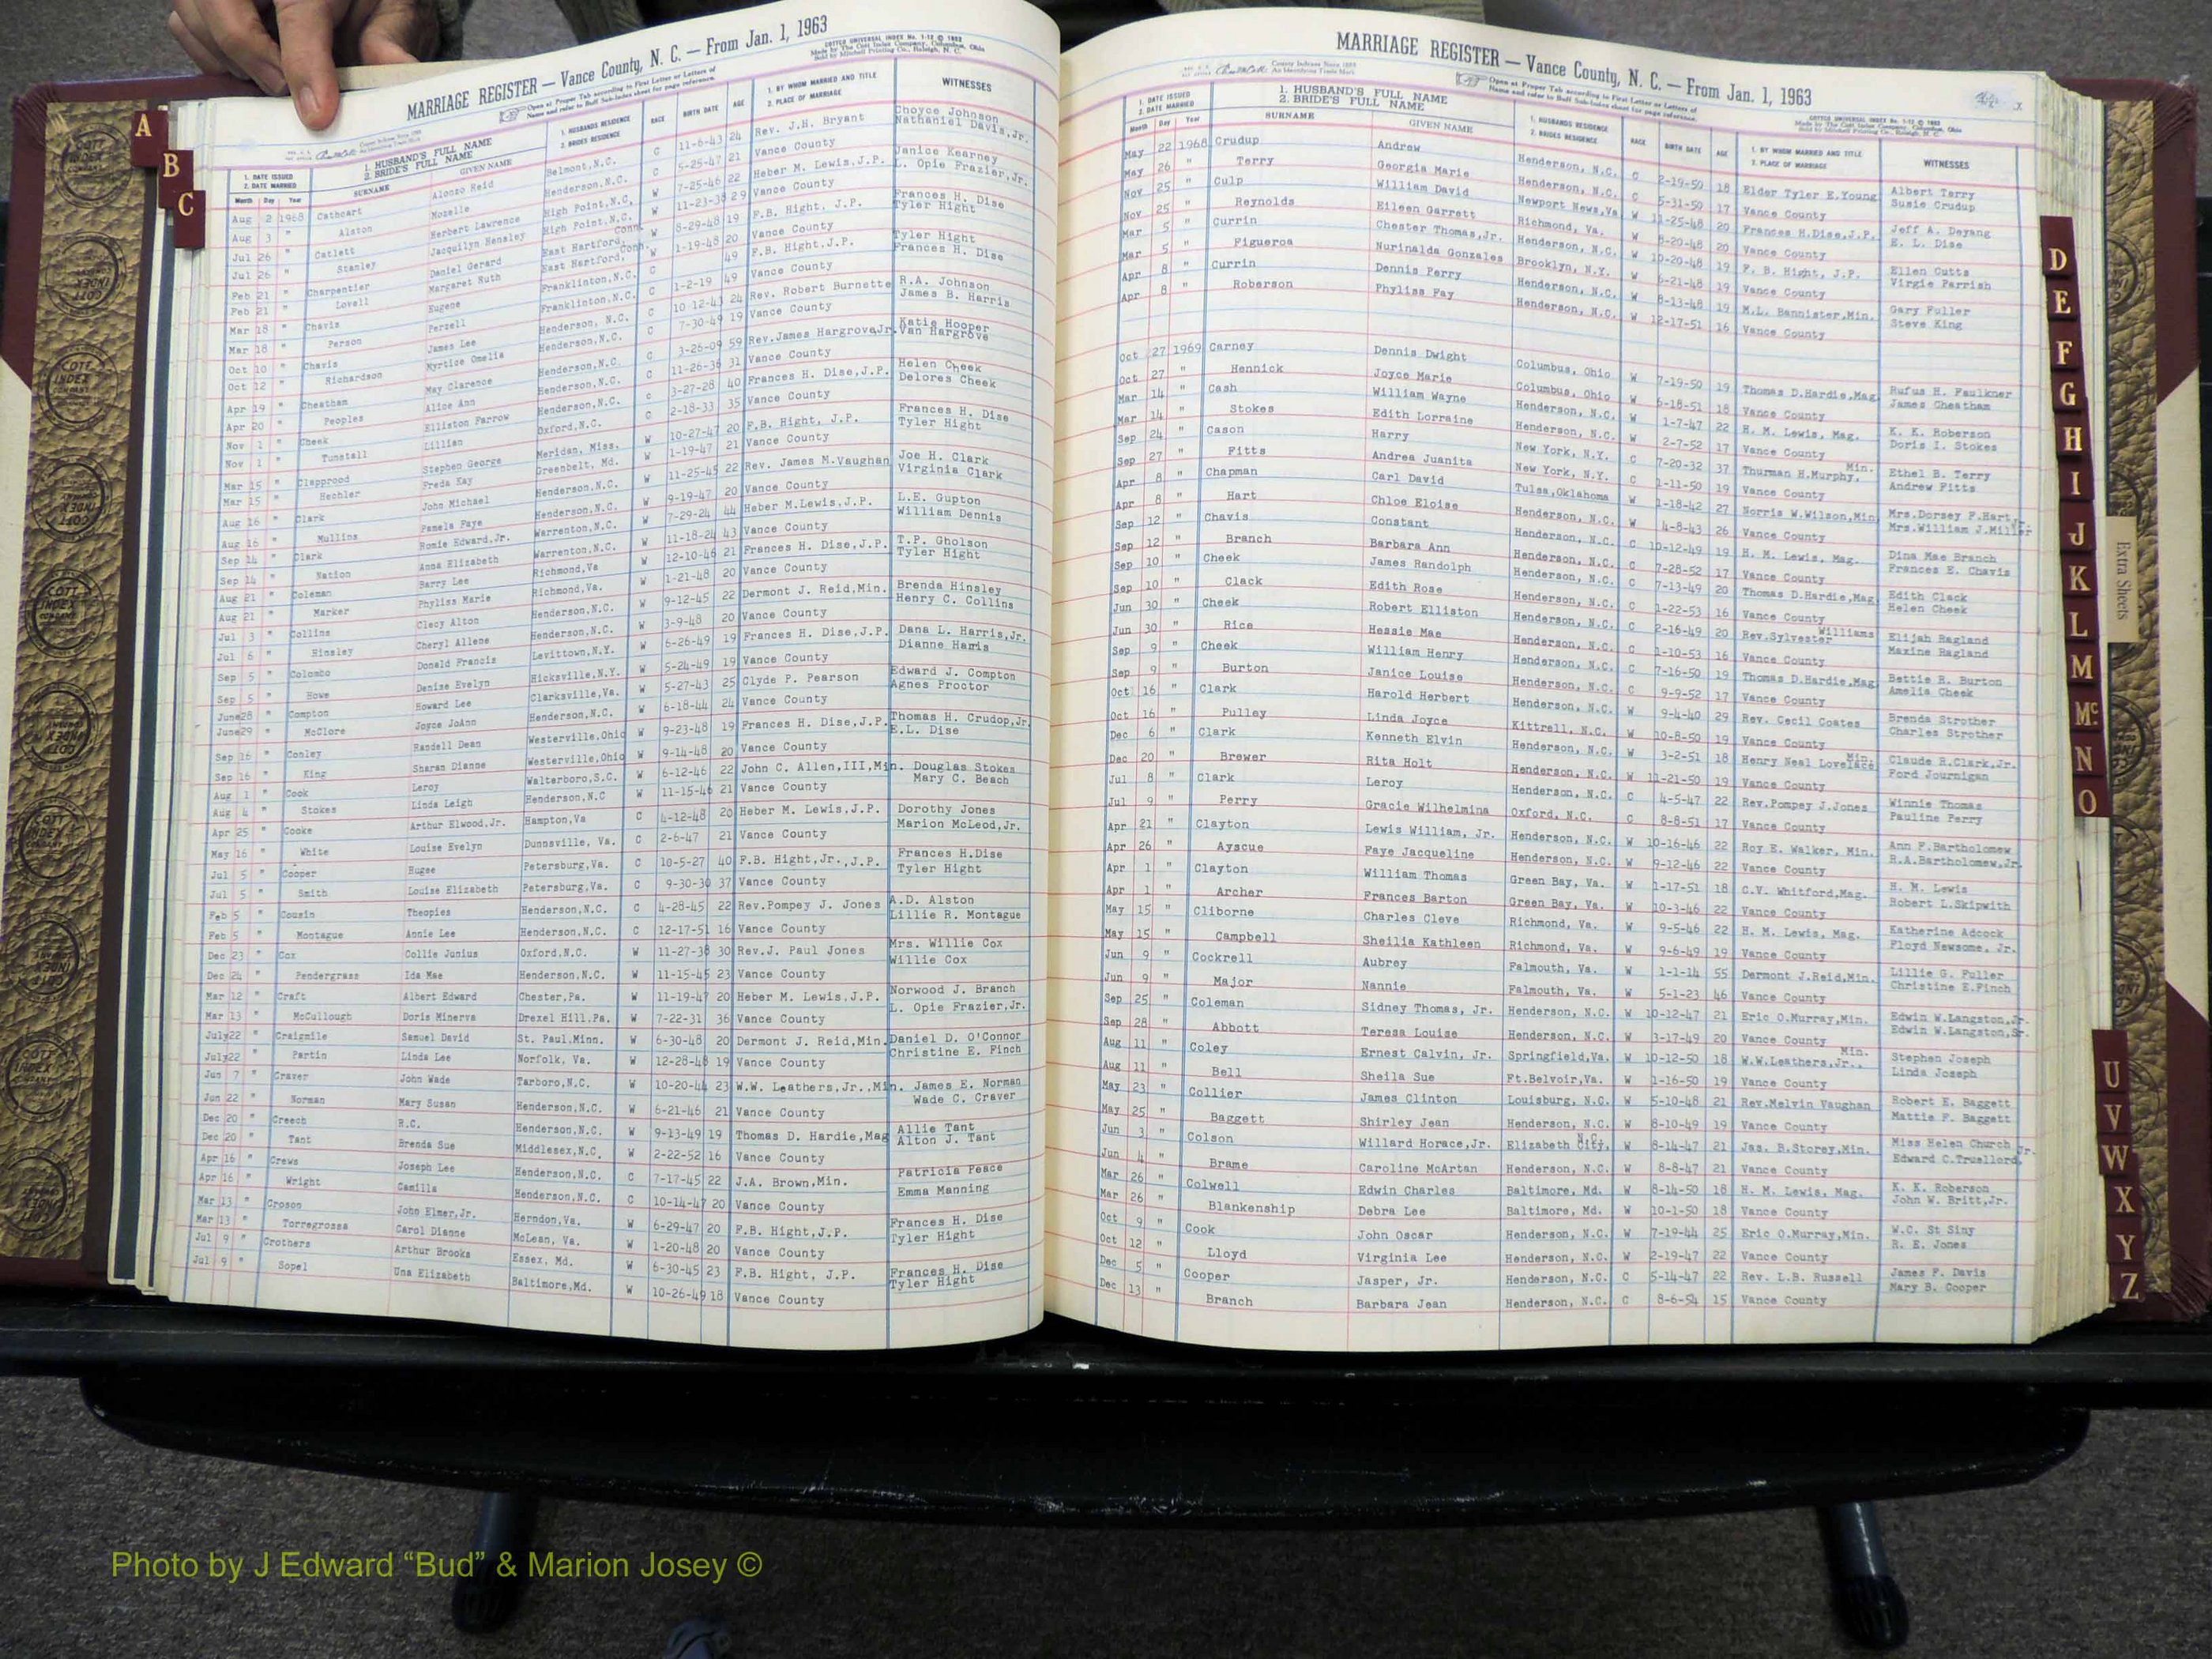 MARRIAGE REGISTER — Vance County, N. C. — From Jan. 1, 1963
Open at Proper Tab according to First Letter or Letters of
Name and refer to Buff Sub-Index sheet for page reference.
COTTCO UNIVERSAL INDEX No. 1-12 © 1952
Made by The Cott Index Company, Columbus, Ohio
Sold by Mitchell Printing Co., Raleigh, N. C.
1. DATE ISSUED 2. DATE MARRIED 1. HUSBAND'S FULL NAME 2. BRIDE'S FULL NAME 1. HUSBANDS RESIDENCE 2. BRIDES RESIDENCE RACE BIRTH DATE AGE 1. BY WHOM MARRIED AND TITLE 2. PLACE OF MARRIAGE WITNESSES
Month Day Year SURNAME GIVEN NAME
Aug 2 1968 Cathcart Alonzo Reid Belmont,N.C. C 11-6-43 24 Rev. J.H. Bryant Choyce Johnson
Aug 3 " Alston Mozelle Henderson,N.C. C 5-25-47 21 Vance County Nathaniel Davis,Jr.
Jul 26 " Catlett Herbert Lawrence High Point,N.C. W 7-25-46 22 Heber M. Lewis,J.P. Janice Kearney
Jul 26 " Stanley Jacquilyn Hensley High Point,N.C. W 11-23-38 29 Vance County L. Opie Frazier,Jr.
Feb 21 " Charpentier Daniel Gerard East Hartford, Conn. W 8-29-48 19 F.B. Hight, J.P. Frances H. Dise
Feb 21 " Lovell Margaret Ruth East Hartford, Conn. W 1-19-48 20 Vance County Tyler Hight
Mar 18 " Chavis Eugene Franklinton,N.C. C 49 F.B. Hight,J.P. Tyler Hight
Mar 18 " Person Perzell Franklinton,N.C. C 1-2-19 49 Vance County Frances H. Dise
Oct 10 " Chavis James Lee Henderson, N.C. C 10-12-43 24 Rev. Robert Burnette R.A. Johnson
Oct 12 " Richardson Myrtice Omelia Henderson,N.C. C 7-30-49 19 Vance County James B. Harris
Apr 19 " Cheatham May Clarence Henderson,N.C. C 3-26-09 59 Rev.James Hargrove,Jr. Katie Hooper
Apr 20 " Peoples Alice Ann Henderson,N.C. C 11-26-36 31 Vance County Van Hargrove
Nov 1 " Cheek Elliston Farrow Henderson,N.C. C 3-27-28 40 Frances H. Dise,J.P. Helen Cheek
Nov 1 " Tunstall Lillian Oxford,N.C. C 2-18-33 35 Vance County Delores Cheek
Mar 15 " Clapprood Stephen George Meridan, Miss. W 10-27-47 20 F.B. Hight, J.P. Frances H. Dise
Mar 15 " Hechler Freda Kay Greenbelt, Md. W 1-19-47 21 Vance County Tyler Hight
Aug 16 " Clark John Michael Henderson,N.C. W 11-25-45 22 Rev. James M.Vaughan Joe H. Clark
Aug 16 " Mullins Pamela Faye Henderson,N.C. W 9-19-47 20 Vance County Virginia Clark
Sep 14 " Clark Romie Edward,Jr. Warrenton,N.C. W 7-29-24 44 Heber M.Lewis,J.P. L.E. Gupton
Sep 14 " Nation Anna Elizabeth Warrenton,N.C. W 11-18-24 43 Vance County William Dennis
Aug 21 " Coleman Barry Lee Richmond,Va W 12-10-46 21 Frances H. Dise,J.P. T.P. Gholson
Aug 21 " Marker Phyliss Marie Richmond,Va. W 1-21-48 20 Vance County Tyler Hight
Jul 3 " Collins Clecy Alton Henderson,N.C. W 9-12-45 22 Dermont J. Reid,Min. Brenda Hinsley
Jul 6 " Hinsley Cheryl Allene Henderson,N.C. W 3-9-48 20 Vance County Henry C. Collins
Sep 5 " Colombo Donald Francis Levittown,N.Y. W 6-26-49 19 Frances H. Dise,J.P. Dana L. Harris,Jr.
Sep 5 " Howe Denise Evelyn Hicksville,N.Y. W 5-24-49 19 Vance County Dianne Harris
June28 " Compton Howard Lee Clarksville,Va. W 5-27-43 25 Clyde P. Pearson Edward J. Compton
June29 " McClore Joyce JoAnn Henderson,N.C. W 6-18-44 24 Vance County Agnes Proctor
Sep 16 " Conley Randell Dean Westerville,Ohio W 9-23-48 19 Frances H. Dise,J.P. Thomas H. Crudop,Jr.
Sep 16 " King Sharan Dianne Westerville,Ohio W 9-14-48 20 Vance County E.L. Dise
Aug 1 " Cook Leroy Walterboro,S.C. W 6-12-46 22 John C. Allen,III,Min. Douglas Stokes
Aug 4 " Stokes Linda Leigh Henderson,N.C W 11-15-46 21 Vance County Mary C. Beach
Apr 25 " Cooke Arthur Elwood,Jr. Hampton,Va C 4-12-48 20 Heber M. Lewis,J.P. Dorothy Jones
May 16 " White Louise Evelyn Dunnsville, Va. C 2-6-47 21 Vance County Marion McLeod,Jr.
Jul 5 " Cooper Hugee Petersburg,Va. C 10-5-27 40 F.B. Hight,Jr.,J.P. Frances H.Dise
Jul 5 " Smith Louise Elizabeth Petersburg,Va. C 9-30-30 37 Vance County Tyler Hight
Feb 5 " Cousin Theopies Henderson,N.C. C 4-28-45 22 Rev.Pompey J. Jones A.D. Alston
Feb 5 " Montague Annie Lee Henderson,N.C. C 12-17-51 16 Vance County Lillie R. Montague
Dec 23 " Cox Collie Junius Oxford,N.C. W 11-27-38 30 Rev.J. Paul Jones Mrs. Willie Cox
Dec 24 " Pendergrass Ida Mae Henderson,N.C. W 11-15-45 23 Vance County Willie Cox
Mar 12 " Craft Albert Edward Chester,Pa. W 11-19-47 20 Heber M. Lewis,J.P. Norwood J. Branch
Mar 13 " McCullough Doris Minerva Drexel Hill,Pa. W 7-22-31 36 Vance County L. Opie Frazier,Jr.
July22 " Craigmile Samuel David St. Paul,Minn. W 6-30-48 20 Dermont J. Reid,Min. Daniel D. O'Connor
July22 " Partin Linda Lee Norfolk, Va. W 12-28-48 19 Vance County Christine E. Finch
Jun 7 " Craver John Wade Tarboro,N.C. W 10-20-44 23 W.W. Leathers,Jr.,Min. James E. Norman
Jun 22 " Norman Mary Susan Henderson,N.C. W 6-21-46 21 Vance County Wade C. Craver
Dec 20 " Creech R.C. Henderson,N.C. W 9-13-49 19 Thomas D. Hardie,Mag Allie Tant
Dec 20 " Tant Brenda Sue Middlesex,N.C. W 2-22-52 16 Vance County Alton J. Tant
Apr 16 " Crews Joseph Lee Henderson,N.C. C 7-17-45 22 J.A. Brown,Min. Patricia Peace
Apr 16 " Wright Camilla Henderson,N.C. C 10-14-47 20 Vance County Emma Manning
Mar 13 " Croson John Elmer,Jr. Herndon,Va. W 6-29-47 20 F.B. Hight,J.P. Frances H. Dise
Mar 13 " Torregrossa Carol Dianne McLean, Va. W 1-20-48 20 Vance County Tyler Hight
Jul 9 " Crothers Arthur Brooks Essex, Md. W 6-30-45 23 F.B. Hight, J.P. Frances H. Dise
Jul 9 " Sopel Una Elizabeth Baltimore,Md. W 10-26-49 18 Vance County Tyler Hight
MARRIAGE REGISTER — Vance County, N. C. — From Jan. 1, 1963
Open at Proper Tab according to First Letter or Letters of
Name and refer to Buff Sub-Index sheet for page reference.
COTTCO UNIVERSAL INDEX No. 1-12 © 1952
Made by The Cott Index Company, Columbus, Ohio
Sold by Mitchell Printing Co., Raleigh, N. C.
1. DATE ISSUED 2. DATE MARRIED 1. HUSBAND'S FULL NAME 2. BRIDE'S FULL NAME 1. HUSBANDS RESIDENCE 2. BRIDES RESIDENCE RACE BIRTH DATE AGE 1. BY WHOM MARRIED AND TITLE 2. PLACE OF MARRIAGE WITNESSES
Month Day Year SURNAME GIVEN NAME
May 22 1968 Crudup Andrew Henderson, N.C. C 2-19-50 18 Elder Tyler E.Young Albert Terry
May 26 " Terry Georgia Marie Henderson, N.C. C 5-31-50 17 Vance County Susie Crudup
Nov 25 " Culp William David Newport News,Va. W 11-25-48 20 Frances H.Dise,J.P. Jeff A. Deyang
Nov 25 " Reynolds Eileen Garrett Richmond, Va. W 8-20-48 20 Vance County E. L. Dise
Mar 5 " Currin Chester Thomas,Jr. Henderson, N.C. W 10-20-48 19 F. B. Hight, J.P. Ellen Cutts
Mar 5 " Figueroa Nurinalda Gonzales Brooklyn, N.Y. W 6-21-48 19 Vance County Virgie Parrish
Apr 8 " Currin Dennis Perry Henderson, N.C. W 8-13-48 19 M.L. Bannister,Min. Gary Fuller
Apr 8 " Roberson Phyliss Fay Henderson, N.C. W 12-17-51 16 Vance County Steve King
Oct 27 1969 Carney Dennis Dwight Columbus, Ohio W 7-19-50 19 Thomas D.Hardie,Mag Rufus H. Faulkner
Oct 27 " Hennick Joyce Marie Columbus, Ohio W 6-18-51 18 Vance County James Cheatham
Mar 14 " Cash William Wayne Henderson, N.C. W 1-7-47 22 H. M. Lewis, Mag. K. K. Roberson
Mar 14 " Stokes Edith Lorraine Henderson, N.C. W 2-7-52 17 Vance County Doris I. Stokes
Sep 24 " Cason Harry New York, N.Y. C 7-20-32 37 Thurman H.Murphy, Min. Ethel B. Terry
Sep 27 " Fitts Andrea Juanita New York, N.Y. C 1-11-50 19 Vance County Andrew Fitts
Apr 8 " Chapman Carl David Tulsa,Oklahoma W 1-18-42 27 Norris W.Wilson,Min Mrs.Dorsey F.Hart,Jr.
Apr 8 " Hart Chloe Eloise Henderson, N.C. W 4-8-43 26 Vance County Mrs.William J.Miller
Sep 12 " Chavis Constant Henderson, N.C. C 10-12-49 19 H. M. Lewis, Mag. Dina Mae Branch
Sep 12 " Branch Barbara Ann Henderson, N.C. C 7-28-52 17 Vance County Frances E. Chavis
Sep 10 " Cheek James Randolph Henderson, N.C. C 7-13-49 20 Thomas D.Hardie,Mag Edith Clack
Sep 10 " Clack Edith Rose Henderson, N.C. C 1-22-53 16 Vance County Helen Cheek
Jun 30 " Cheek Robert Elliston Henderson, N.C. C 2-16-49 20 Rev.Sylvester Williams Elijah Ragland
Jun 30 " Rice Hessie Mae Henderson, N.C. C 1-10-53 16 Vance County Maxine Ragland
Sep 9 " Cheek William Henry Henderson, N.C. C 7-16-50 19 Thomas D.Hardie,Mag Bettie R. Burton
Sep 9 " Burton Janice Louise Henderson, N.C. C 9-9-52 17 Vance County Amelia Cheek
Oct 16 " Clark Harold Herbert Henderson, N.C. W 9-4-40 29 Rev. Cecil Coates Brenda Strother
Oct 16 " Pulley Linda Joyce Kittrell, N.C. W 10-8-50 19 Vance County Charles Strother
Dec 6 " Clark Kenneth Elvin Henderson, N.C. W 3-2-51 18 Henry Neal Lovelace Min. Claude R.Clark,Jr.
Dec 20 " Brewer Rita Holt Henderson, N.C. W 11-21-50 19 Vance County Ford Journigan
Jul 8 " Clark Leroy Henderson, N.C. C 4-5-47 22 Rev.Pompey J.Jones Winnie Thomas
Jul 9 " Perry Gracie Wilhelmina Oxford, N.C. C 8-8-51 17 Vance County Pauline Perry
Apr 21 " Clayton Lewis William, Jr. Henderson, N.C. W 10-16-46 22 Roy E. Walker, Min. Ann F.Bartholomew
Apr 26 " Ayscue Faye Jacqueline Henderson, N.C. W 9-12-46 22 Vance County R.A.Bartholomew,Jr.
Apr 1 " Clayton William Thomas Green Bay, Va. W 1-17-51 18 C.V. Whitford,Mag. H. M. Lewis
Apr 1 " Archer Frances Barton Green Bay, Va. W 10-3-46 22 Vance County Robert L.Skipwith
May 15 " Cliborne Charles Cleve Richmond, Va. W 9-5-46 22 H. M. Lewis, Mag. Katherine Adcock
May 15 " Campbell Sheilia Kathleen Richmond, Va. W 9-6-49 19 Vance County Floyd Newsome, Jr.
Jun 9 " Cockrell Aubrey Falmouth, Va. W 1-1-14 55 Dermont J.Reid,Min. Lillie G. Fuller
Jun 9 " Major Nannie Falmouth, Va. W 5-1-23 46 Vance County Christine E.Finch
Sep 25 " Coleman Sidney Thomas, Jr. Henderson, N.C. W 10-12-47 21 Eric O.Murray,Min. Edwin W.Langston,Jr.
Sep 28 " Abbott Teresa Louise Henderson, N.C. W 3-17-49 20 Vance County Edwin W.Langston,Sr.
Aug 11 " Coley Ernest Calvin, Jr. Springfield,Va. W 10-12-50 18 W.W.Leathers,Jr., Min. Stephen Joseph
Aug 11 " Bell Sheila Sue Ft.Belvoir,Va. W 1-16-50 19 Vance County Linda Joseph
May 23 " Collier James Clinton Louisburg, N.C. W 5-10-48 21 Rev.Melvin Vaughan Robert E. Baggett
May 25 " Baggett Shirley Jean Henderson, N.C. W 8-10-49 19 Vance County Mattie F. Baggett
Jun 3 " Colson Willard Horace,Jr. Elizabeth City, N.C. W 8-14-47 21 Jas. B.Storey,Min. Miss Helen Church
Jun 4 " Brame Caroline McArtan Henderson, N.C. W 8-8-47 21 Vance County Edward C.Truellord,Jr.
Mar 26 " Colwell Edwin Charles Baltimore, Md. W 8-14-50 18 H. M. Lewis, Mag. K. K. Roberson
Mar 26 " Blankenship Debra Lee Baltimore, Md. W 10-1-50 18 Vance County John W. Britt,Jr.
Oct 9 " Cook John Oscar Henderson, N.C. W 7-19-44 25 Eric O.Murray,Min. W.C. St Siny
Oct 12 " Lloyd Virginia Lee Henderson, N.C. W 2-19-47 22 Vance County R. E. Jones
Dec 5 " Cooper Jasper, Jr. Henderson, N.C. C 5-14-47 22 Rev. L.B. Russell James F. Davis
Dec 13 " Branch Barbara Jean Henderson, N.C. C 8-6-54 15 Vance County Mary S. Cooper
A
B
C
D
E
F
G
H
I
J
K
L
M
Mc
N
O
U
V
W
X
Y
Z
Extra Sheets
Photo by J Edward “Bud” & Marion Josey ©